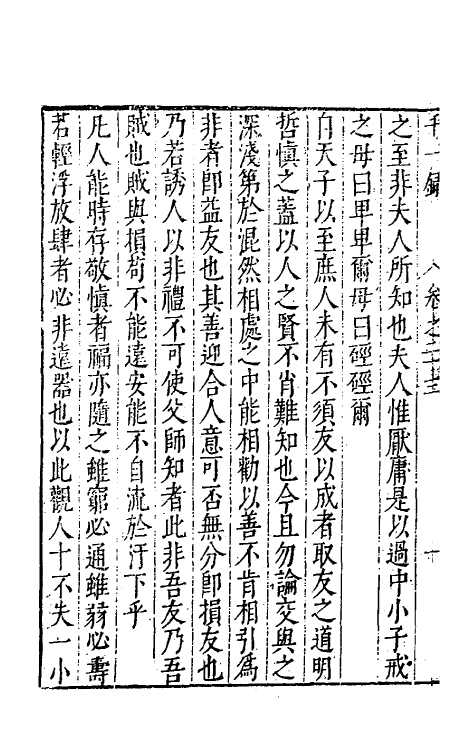 之至非夫人所知也夫人惟厭庸是以過中小子戒
之毋曰卑卑爾毋曰硜硜爾
自天子以至庶人未有不須友以成者取友之道明
哲慎之蓋以人之賢不肖難知也今且勿論交與之
深淺第於混然相處之中能相勸以善不肯相引為
非者卽益友也其善迎合人意可否無分卽損友也
乃若誘人以非禮不可使父師知者此非吾友乃吾
賊也賊與損苟不能遠安能不自流於汙下乎
凡人能時存敬慎者福亦隨之雖窮必通雖弱必壽
若輕浮放肆者必非遠器也以此觀人十不失一小